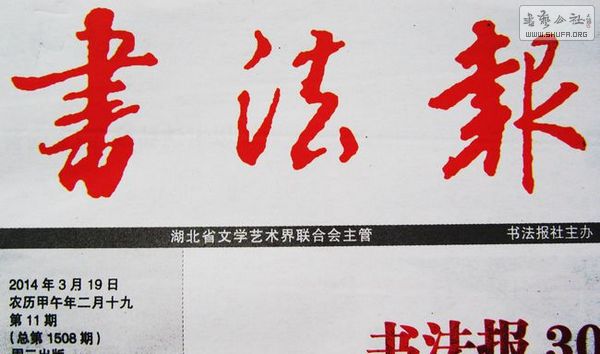 書藝公社
WWW.SHUFA.ORG
書法報
湖北省文学艺术界联合会主管 书法报社主办
2014年3月19日
农历甲午年二月十九
第11期
(总第1508期)
周三出版
书法报 30